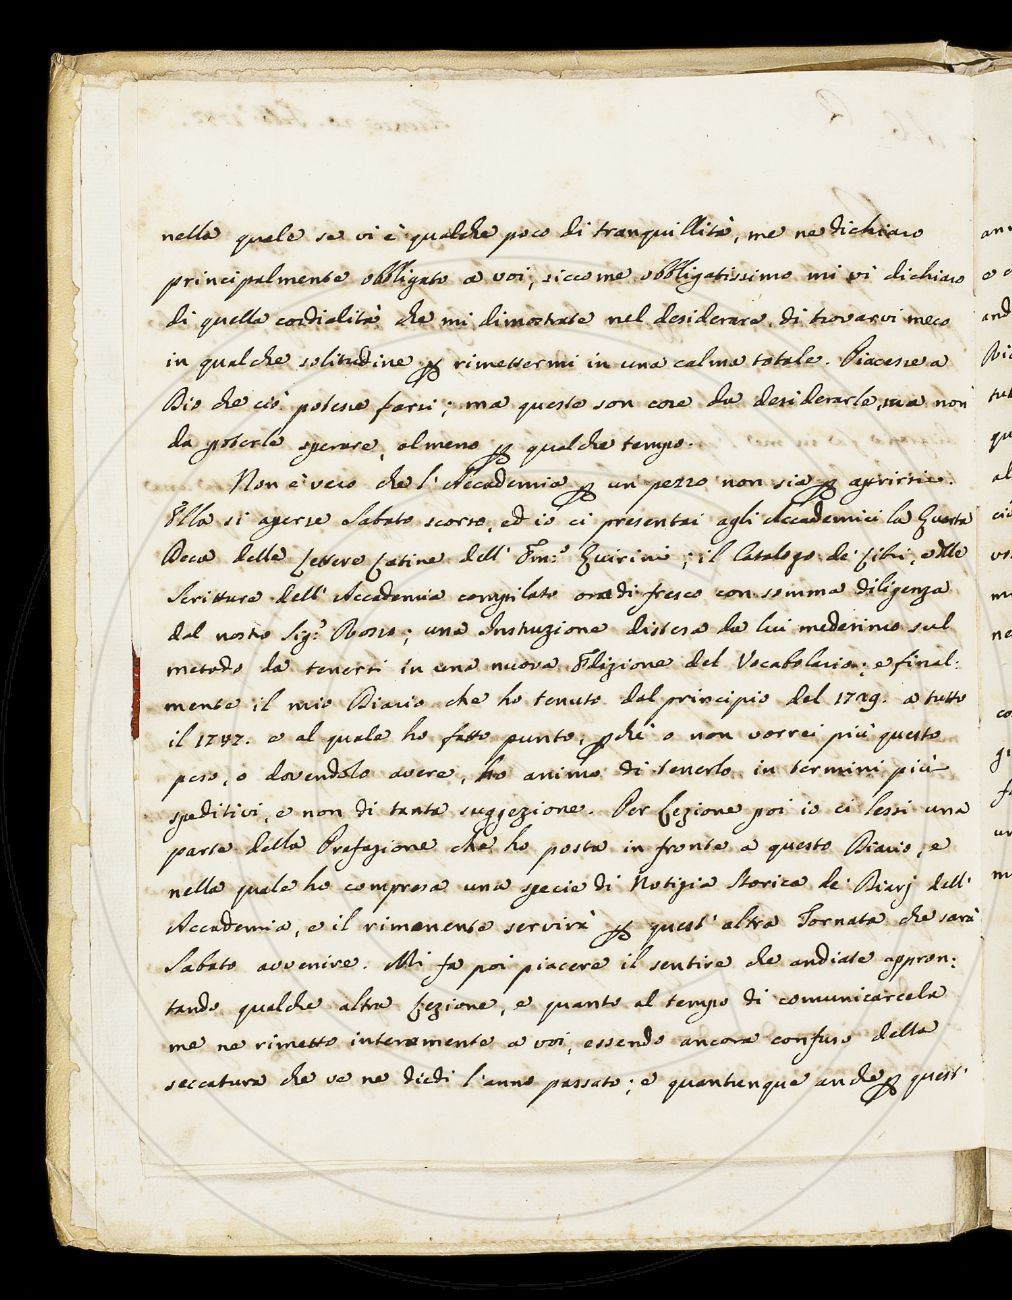 nella quale se vi è qualche poco di tranquillità, me ne dichiaro
principalmente obbligato a voi, siccome obbligatissimo mi vi dichiaro
di quella cordialità che mi dimostrate nel desiderare di trovarvi meco
in qualche solitudine p rimettermi in una calma totale. Piacesse a
Dio che ciò potesse farsi; ma queste son cose da desiderarle, ma non
da poterle sperare, almeno p qualche tempo.
Non è vero che l'Accademia p un pezzo non sia p aprirsi.
Ella si aperse Sabato scorso, ed io ci presentai agli Accademici la Quarta
Deca delle Lettere Latine dell' Em.º Quirini; il Catalogo de' Libri, e delle
Scritture dell' Accademia compilato ora di fresco con somma diligenza
dal nostro Sig.r Rosso; una Instruzione distesa da lui medesimo sul
metodo da tenersi in una nuova Edizione del Vocabolario; e final:
mente il mio Diario che ho tenuto dal principio del 1729. a tutto
il 1747. e al quale ho fatto punto, pchè o non vorrei più questo
peso, o dovendolo avere, ho animo di tenerlo in termini più
speditivi, e non di tanta suggezione. Per Lezione poi io ci lessi una
parte della Prefazione che ho posta in fronte a questo Diario, e
nella quale ho compresa una specie di Notizia Storica de' Diarj dell'
Accademia, e il rimanente servirà p quest' altra Tornata che sarà
Sabato avvenire. Mi fa poi piacere il sentire che andiate appron:
tando qualche altra Lezione, e quanto al tempo di comunicarcela
me ne rimetto interamente a voi, essendo ancora confuso della
seccatura che ve ne diedi l'anno passato; e quantunque anche p quest'